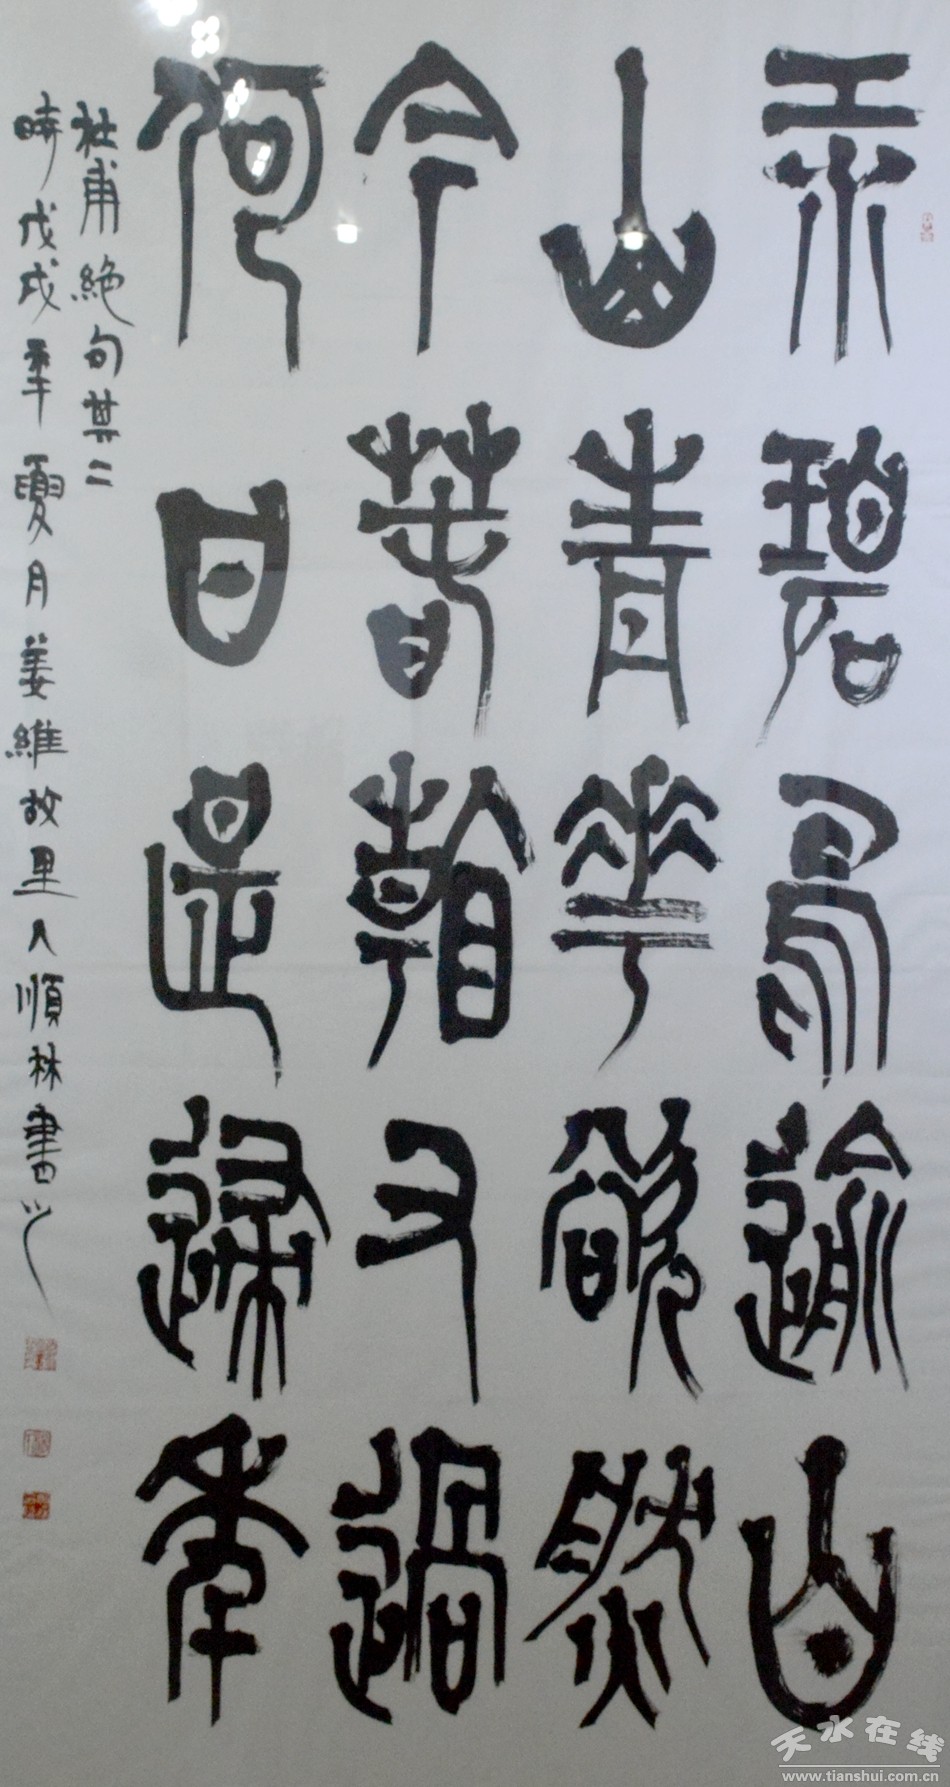 江碧鳥逾白
山青花欲然
今春看又過
何日是歸年
杜甫絶句其二
時戊戌年夏月姜維故里人順林書
天水在线
www.tianshui.com.cn